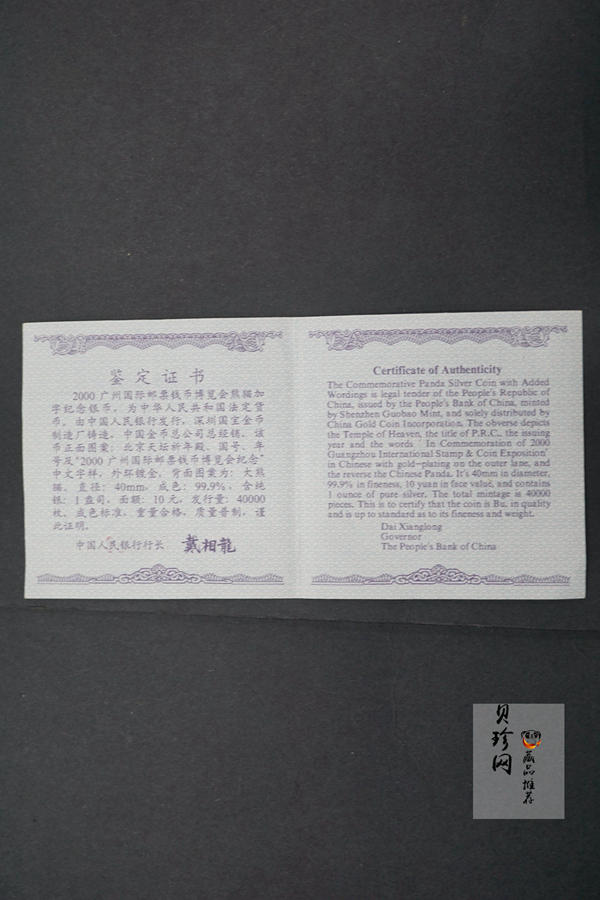 鉴定证书
2000 广州国际邮票钱币博览会熊猫加
字纪念银币，为中华人民共和国法定货
币。由中国人民银行发行，深圳国宝金币
制造厂铸造，中国金币总公司总经销。该
币正面图案：北京天坛祈年殿、国号、年
号及“2000 广州国际邮票钱币博览会纪念”
中文字样，外环镀金，背面图案为：大熊
猫。直径：40mm，成色：99.9%，含纯
银：1 盎司，面额：10 元，发行量：40000
枚。成色标准，重量合格，质量普制，谨
此证明。
中国人民银行行长 戴相龍
Certificate of Authenticity
The Commemorative Panda Silver Coin with Added
Wordings is legal tender of the People's Republic of
China, issued by the People's Bank of China, minted
by Shenzhen Guobao Mint, and solely distributed by
China Gold Coin Incorporation. The obverse depicts
the Temple of Heaven, the title of P.R.C., the issuing
year and the words ' In Commemoration of 2000
Guangzhou International Stamp & Coin Exposition'
in Chinese with gold-plating on the outer lane, and
the reverse the Chinese Panda. It's 40mm in diameter,
99.9% in fineness, 10 yuan in face value, and contains
1 ounce of pure silver. The total mintage is 40000
pieces. This is to certify that the coin is Bu. in quality
and is up to standard as to its fineness and weight.
Dai Xianglong
Governor
The People's Bank of China
贝珍网
藏品推荐